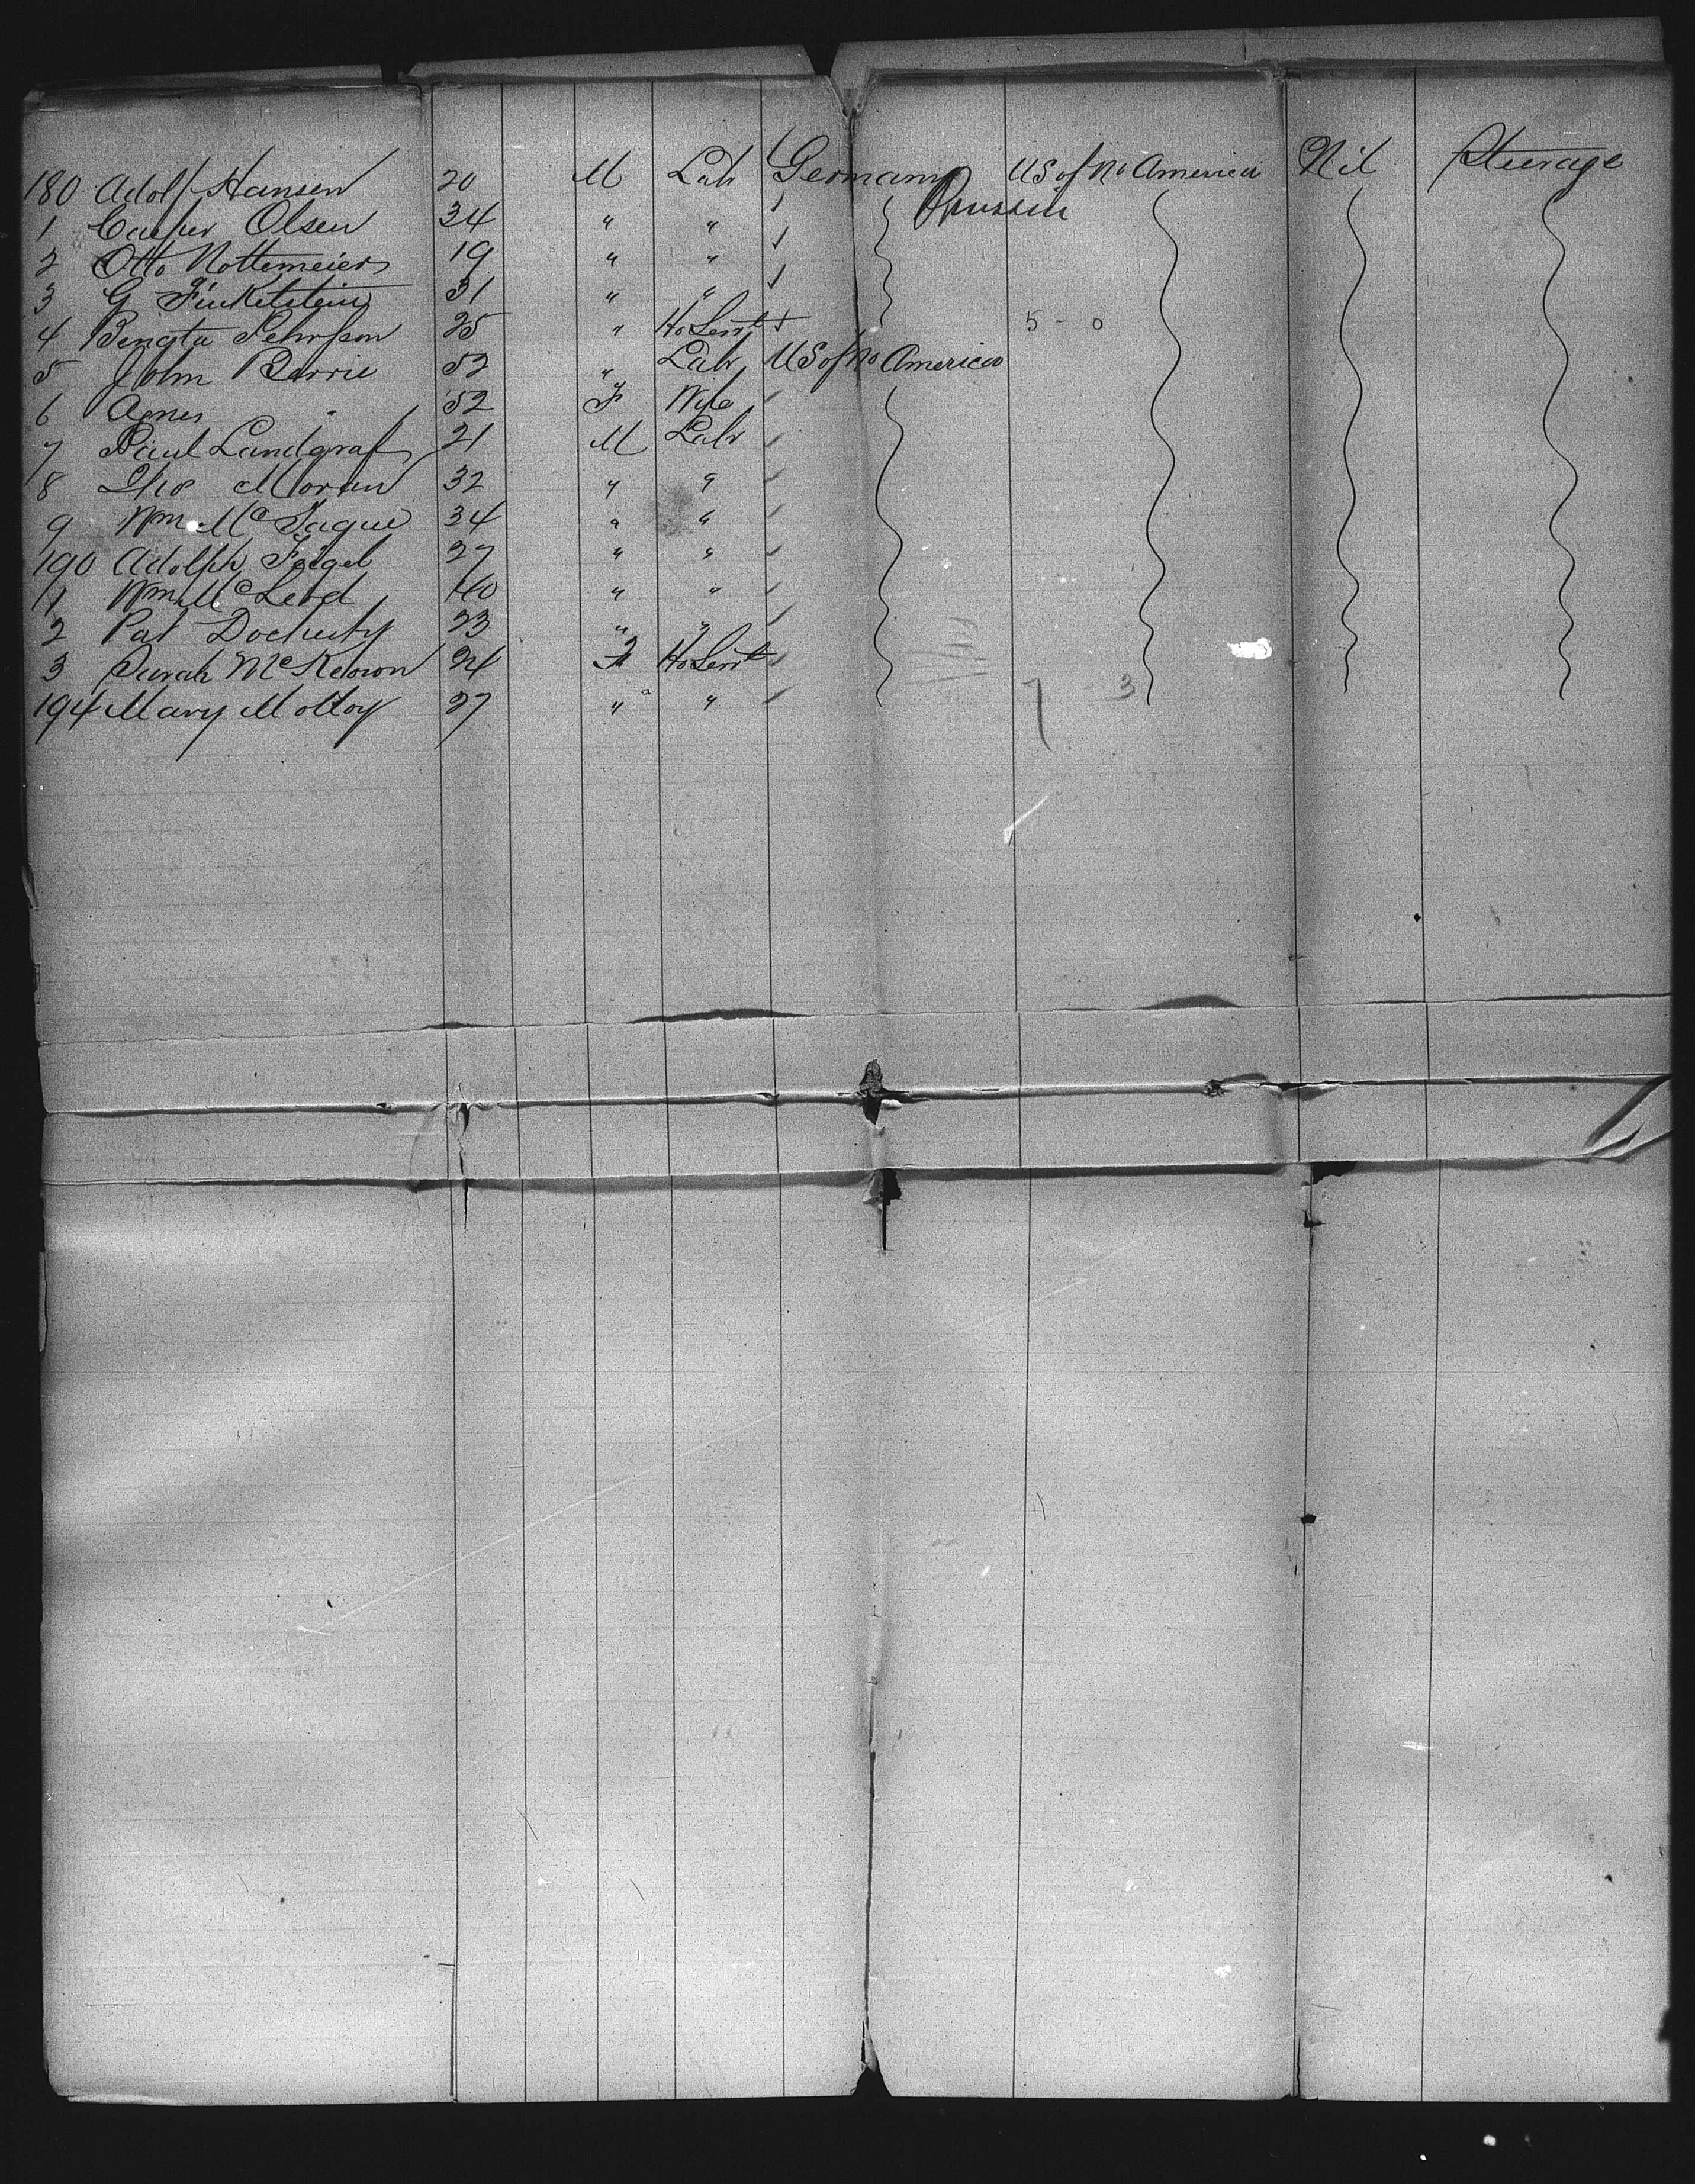 180 Adolf Hansen 20 M Labr Germany US of No America Nil Steerage
1 Casper Olsen 34 " " Prussia
2 Otto Nottemeier 19 " "
3 G Finkelstein 31 " "
4 Bengta Pehrsson 25 " Ho Servt 5 - 0
5 John Barrie 52 " Labr US of No America
6 Agnes " 52 F Wife
7 Paul Landgraf 21 M Labr
8 Thos Moran 32 " "
9 Wm McTague 34 " "
190 Adolph Feigel 27 " "
1 Wm McLeod 40 " "
2 Pat Docherty 23 " "
3 Sarah McKeown 24 F Ho Servt
7 - 3
194 Mary Molloy 27 " "